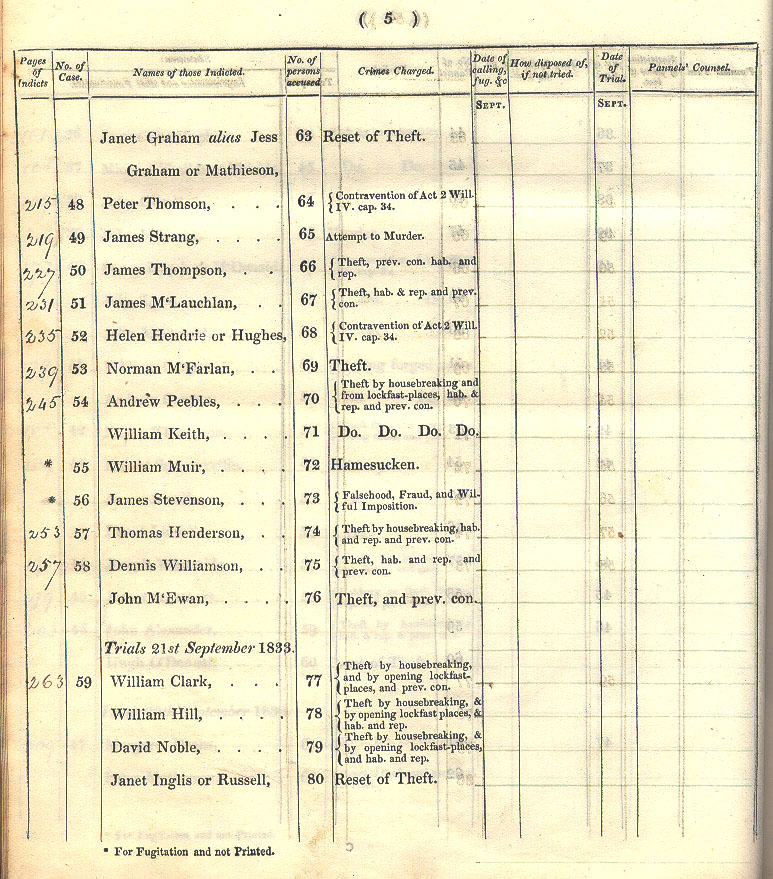 ( 5 )
Pages of Indicts | No. of Case. | Names of those Indicted. | No. of persons accused | Crimes Charged. | Date of calling, fug. &c | How disposed of, if not tried. | Date of Trial. | Pannels' Counsel.
SEPT. | SEPT.
Janet Graham alias Jess | 63 | Reset of Theft.
Graham or Mathieson,
215 | 48 | Peter Thomson, . . . | 64 | { Contravention of Act 2 Will. IV. cap. 34.
219 | 49 | James Strang, . . . . | 65 | Attempt to Murder.
227 | 50 | James Thompson, . . | 66 | { Theft, prev. con. hab. and rep.
231 | 51 | James M'Lauchlan, . . | 67 | { Theft, hab. & rep. and prev. con.
235 | 52 | Helen Hendrie or Hughes, | 68 | { Contravention of Act 2 Will. IV. cap. 34.
239 | 53 | Norman M'Farlan, . . | 69 | Theft.
245 | 54 | Andrew Peebles, . . . | 70 | { Theft by housebreaking and from lockfast-places, hab. & rep. and prev. con.
William Keith, . . . . | 71 | Do. Do. Do. Do.
* | 55 | William Muir, . . . . | 72 | Hamesucken.
* | 56 | James Stevenson, . . . | 73 | { Falsehood, Fraud, and Wilful Imposition.
253 | 57 | Thomas Henderson, . . | 74 | { Theft by housebreaking, hab. and rep. and prev. con.
257 | 58 | Dennis Williamson, . . | 75 | { Theft, hab. and rep. and prev. con.
John M'Ewan, . . . . | 76 | Theft, and prev. con.
Trials 21st September 1833.
263 | 59 | William Clark, . . . | 77 | { Theft by housebreaking, and by opening lockfast-places, and prev. con.
William Hill, . . . . | 78 | { Theft by housebreaking, & by opening lockfast places, & hab. and rep.
David Noble, . . . . | 79 | { Theft by housebreaking, & by opening lockfast-places, and hab. and rep.
Janet Inglis or Russell, | 80 | Reset of Theft.
* For Fugitation and not Printed.